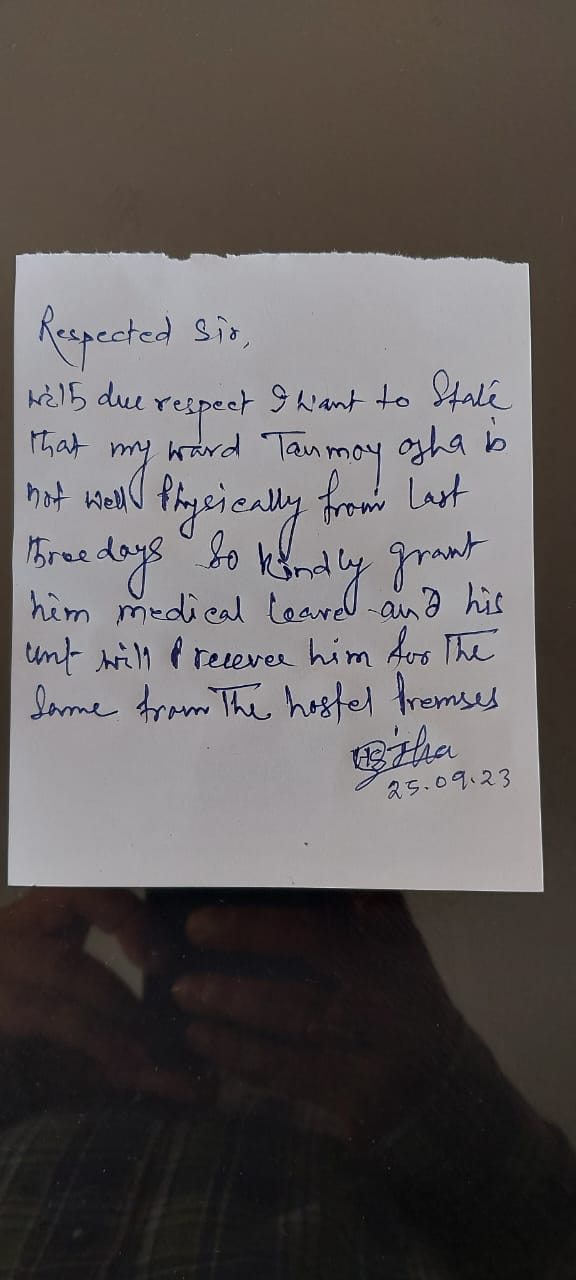 Respected Sir,
with due respect I want to State
that my ward Tanmoy ojha is
not well Physically from Last
three days So kindly grant
him medical leave and his
unt will recevee him for The
Same from The hostel Premses
25.09.23